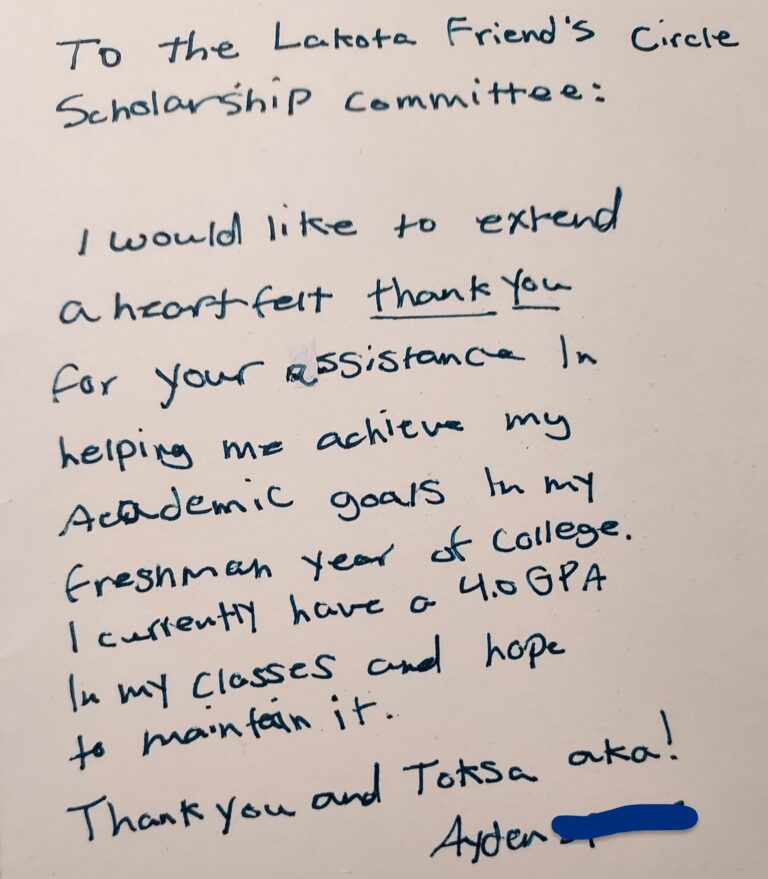 To the Lakota Friend's Circle
Scholarship Committee:
I would like to extend
a heartfelt thank you
for your assistance In
helping me achieve my
Academic goals In my
freshman year of College.
I currently have a 4.0 GPA
In my Classes and hope
to maintain it.
Thank you and Toksa aka!
Ayden